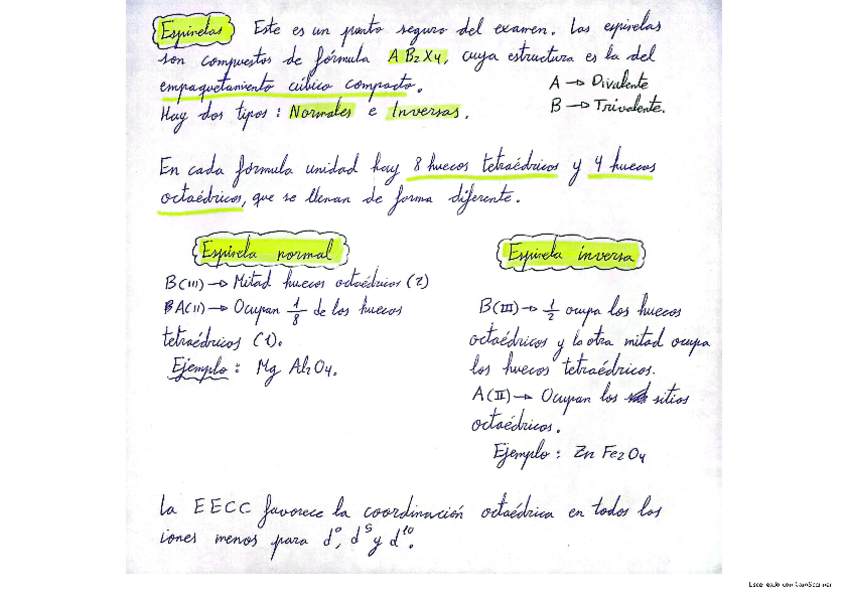 Espinelas Este es un punto seguro del examen. Las espinelas
son compuestos de fórmula AB₂X₄, cuya estructura es la del
empaquetamiento cúbico compacto.
A → Divalente
Hay dos tipos: Normales e Inversas.
B → Trivalente.
En cada fórmula unidad hay 8 huecos tetraédricos y 4 huecos
octaédricos, que se llenan de forma diferente.
Espinela normal
B(III) → Mitad huecos octaédricos (2)
A(II) → Ocupan 1/8 de los huecos
tetraédricos (1).
Ejemplo: Mg Al₂O₄.
Espinela inversa
B(III) → 1/2 ocupa los huecos
octaédricos y la otra mitad ocupa
los huecos tetraédricos.
A(II) → Ocupan los sitios
octaédricos.
Ejemplo: Zn Fe₂O₄
La EECC favorece la coordinación octaédrica en todos los
iones menos para d⁰, d⁵ y d¹⁰.